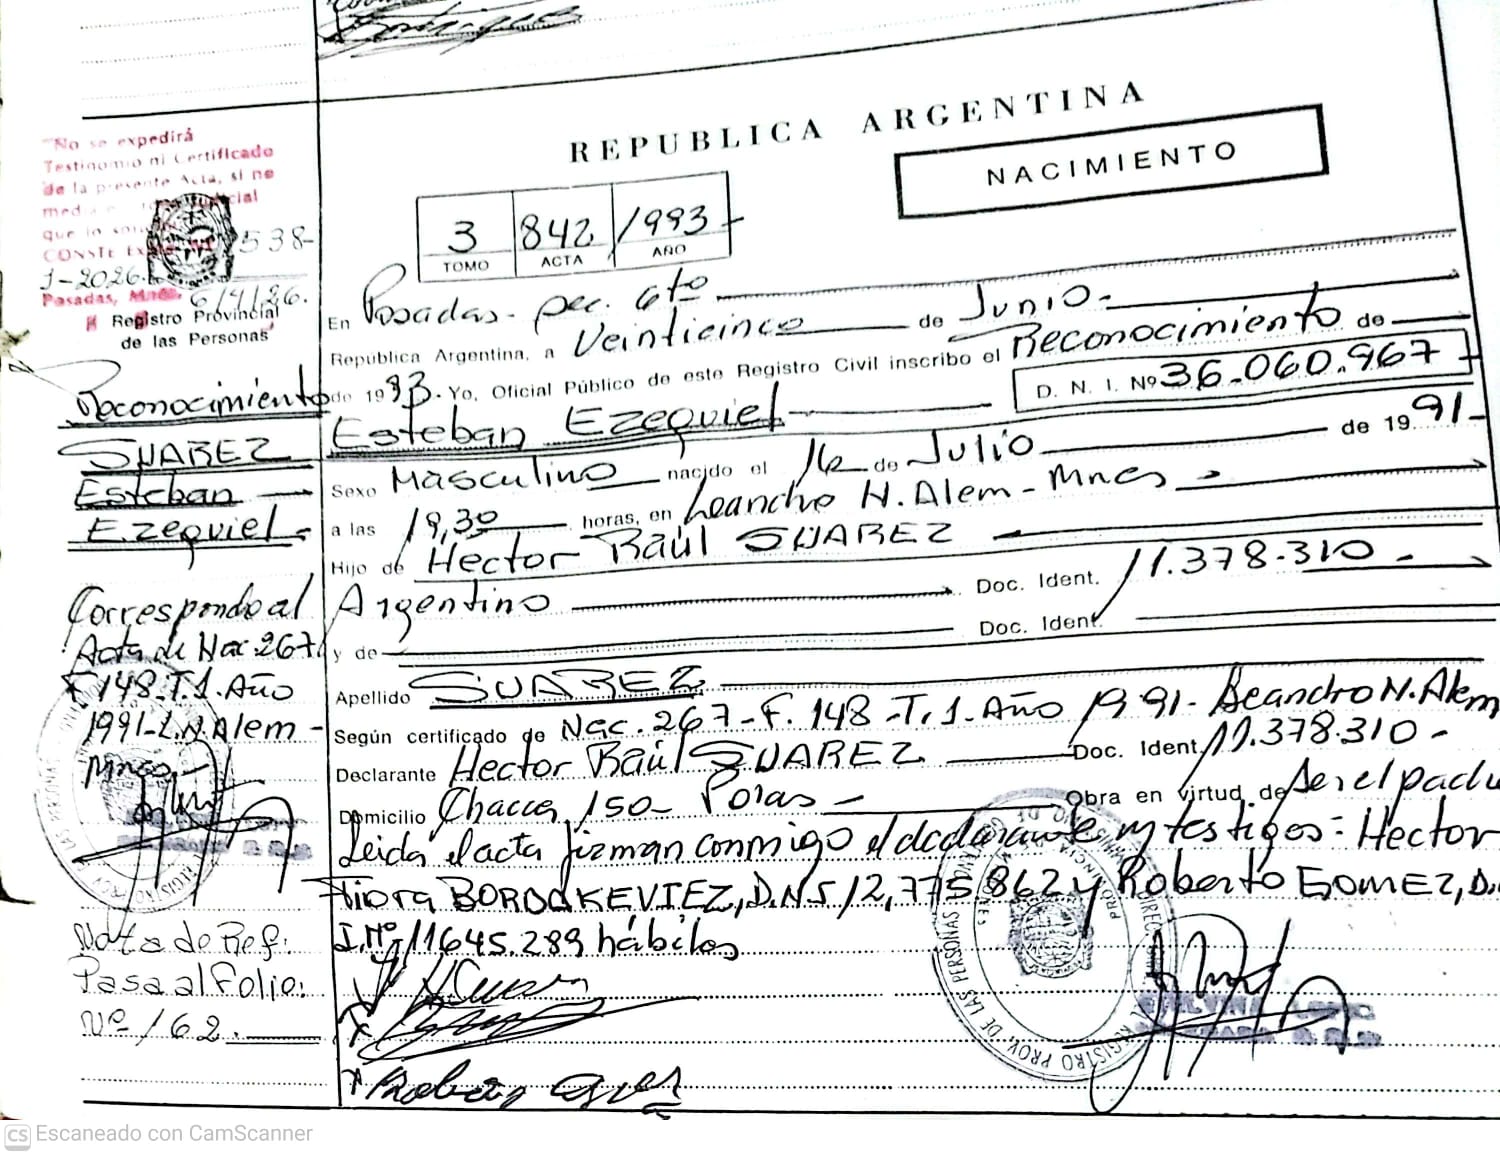 REPUBLICA ARGENTINA
NACIMIENTO
"No se expedirá
Testimonio ni Certificado
de la presente Acta, si no
media
que lo
CONSTE 538-
J-2026.
Posadas, Mnes. 6/1/26.
Registro Provincial
de las Personas
3 842 1993
TOMO ACTA AÑO
En Posadas - sec. 6to
República Argentina, a Veinticinco de Junio.-
de 1993. Yo, Oficial Público de este Registro Civil inscribo el Reconocimiento de
Esteban Ezequiel D. N. I. Nº 36.060.967
Sexo Masculino nacido el 16 de Julio de 1991-
a las 19,30 horas, en Leandro N. Alem - Mnes
Hijo de Hector Raúl SUAREZ
Argentino Doc. Ident. 11.378.310 -
y de Doc. Ident.
Apellido SUAREZ
Según certificado de Nac. 267-F. 148-T.1-Año 1991- Leandro N. Alem
Declarante Hector Raúl SUAREZ Doc. Ident. 11.378.310 -
Domicilio Chacra 150- Posas - Obra en virtud de ser el padre
Leida el acta firman conmigo el declarante y testigos: Hector
BORODAKEVIEZ, D.N.I 12,775.862 y Roberto GOMEZ, D.
I.Nº 11645.289 hábiles
Reconocimiento
SUAREZ
Esteban
Ezequiel -
Corresponde al
Acta de Nac. 267
F 148-T.1-Año
1991-L.N.Alem -
Mnes.-
Nota de Ref:
Pasa al folio:
Nº 162.
REGISTRO PROV. DE LAS PERSONAS
CS Escaneado con CamScanner